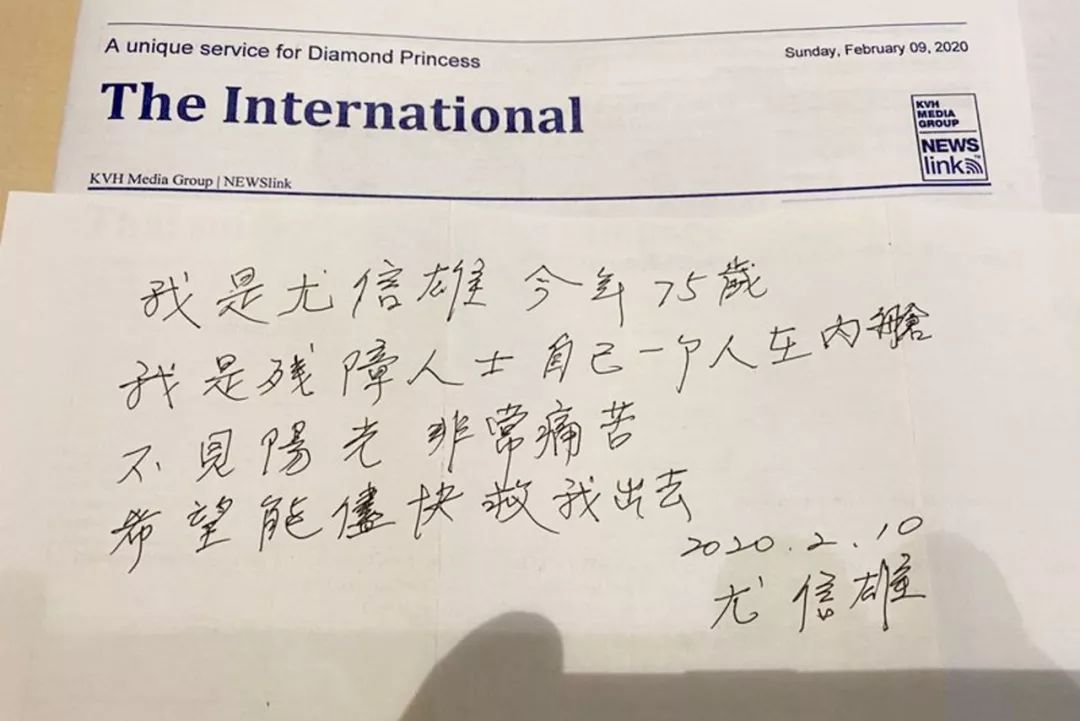 A unique service for Diamond Princess
Sunday, February 09, 2020
The International
KVH
MEDIA
GROUP
NEWS
link
KVH Media Group | NEWSlink
我是尤信雄 今年75歲
我是残障人士自己一个人在内艙
不見陽光 非常痛苦
希望能儘快救我出去
2020.2.10
尤信雄